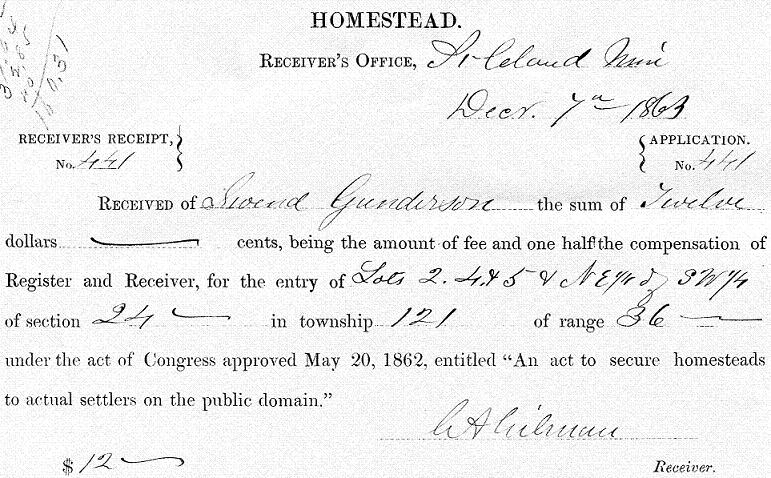 HOMESTEAD.
RECEIVER'S OFFICE, St Cloud Min
Decr. 7th 1863
RECEIVER'S RECEIPT, No. 441
APPLICATION. No. 441
RECEIVED of Swend Gunderson the sum of Twelve
dollars — cents, being the amount of fee and one half the compensation of
Register and Receiver, for the entry of Lots 2. 4 & 5 & NE 1/4 of SW 1/4
of section 24 — in township 121 of range 36 —
under the act of Congress approved May 20, 1862, entitled “An act to secure homesteads
to actual settlers on the public domain.”
C A Gilman
$ 12 — Receiver.